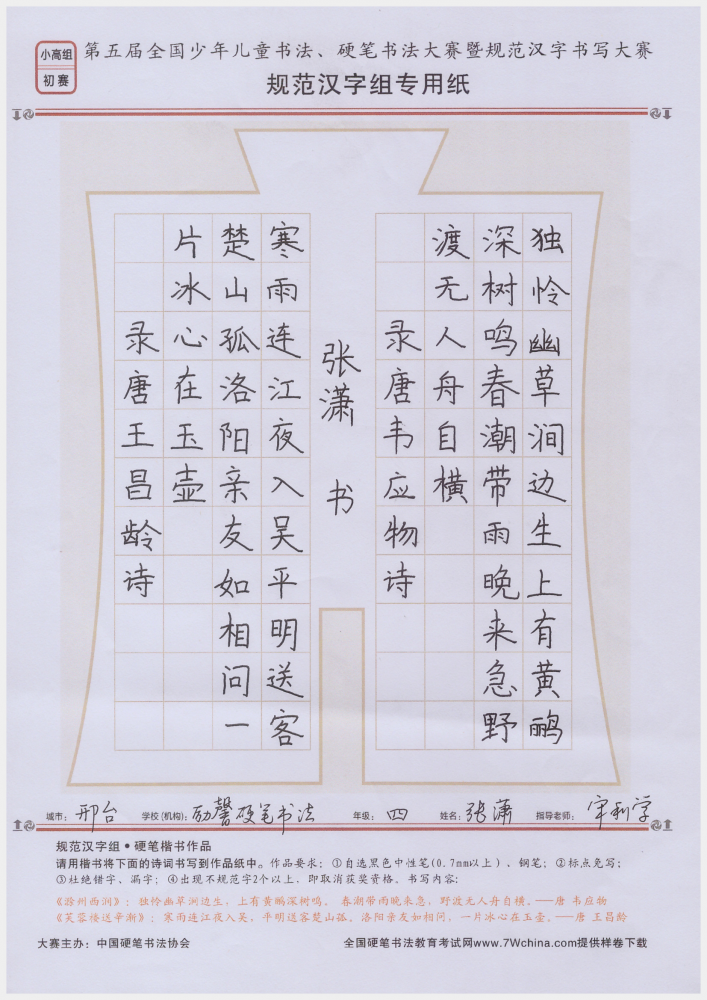 小高组
初赛
第五届全国少年儿童书法、硬笔书法大赛暨规范汉字书写大赛
规范汉字组专用纸
独怜幽草涧边生上有黄鹂
深树鸣春潮带雨晚来急野
渡无人舟自横
录唐韦应物诗
张潇 书
寒雨连江夜入吴平明送客
楚山孤洛阳亲友如相问一
片冰心在玉壶
录唐王昌龄诗
城市：邢台 学校(机构)：励馨硬笔书法 年级：四 姓名：张潇 指导老师：宋利学
规范汉字组•硬笔楷书作品
请用楷书将下面的诗词书写到作品纸中。作品要求：①自选黑色中性笔(0.7mm以上)、钢笔；②标点免写；
③杜绝错字、漏字；④出现不规范字2个以上，即取消获奖资格。书写内容：
《滁州西涧》：独怜幽草涧边生，上有黄鹂深树鸣。春潮带雨晚来急，野渡无人舟自横。——唐 韦应物
《芙蓉楼送辛渐》：寒雨连江夜入吴，平明送客楚山孤。洛阳亲友如相问，一片冰心在玉壶。——唐 王昌龄
大赛主办：中国硬笔书法协会 全国硬笔书法教育考试网www.7Wchina.com提供样卷下载